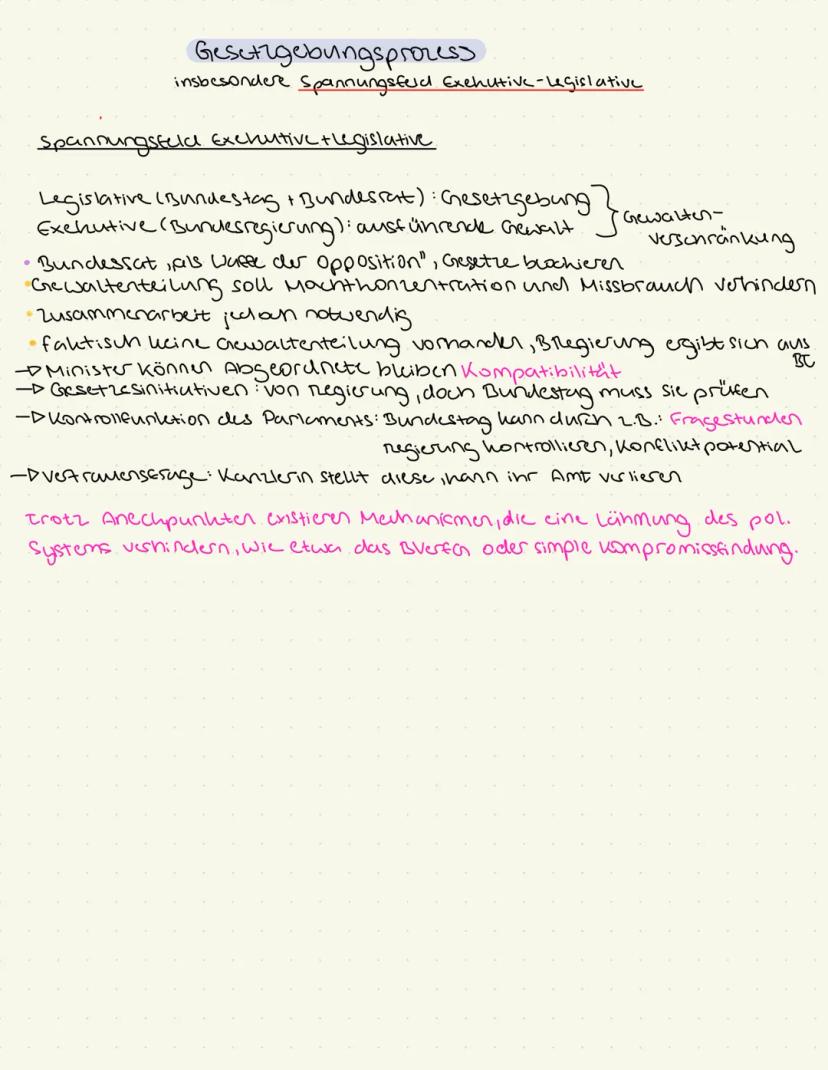 Gesetzgebungsprozess
insbesondere Spannungsfeld Exekutive-Legislative
Spannungsfeld Exekutive + Legislative
Legislative (Bundestag + Bundesrat) : Gesetzgebung
Exekutive (Bundesregierung) : ausführende Gewalt
} Gewalten-
verschränkung
• Bundesrat „als Waffe der Opposition", Gesetze blockieren
• Gewaltenteilung soll Machtkonzentration und Missbrauch verhindern
• Zusammenarbeit jedoch notwendig
• faktisch keine Gewaltenteilung vorhanden, BRegierung ergibt sich aus
BT
→ Minister können Abgeordnete bleiben Kompatibilität
→ Gesetzesinitiativen : von Regierung, doch Bundestag muss sie prüfen
→ Kontrollfunktion des Parlaments: Bundestag kann durch z.B.: Fragestunden
Regierung kontrollieren, Konfliktpotential
→ Vertrauensfrage: Kanzlerin stellt diese, kann ihr Amt verlieren
Trotz Aneckpunkten existieren Mechanismen, die eine Lähmung des pol.
Systems verhindern, wie etwa das BVerfG oder simple Kompromissfindung.